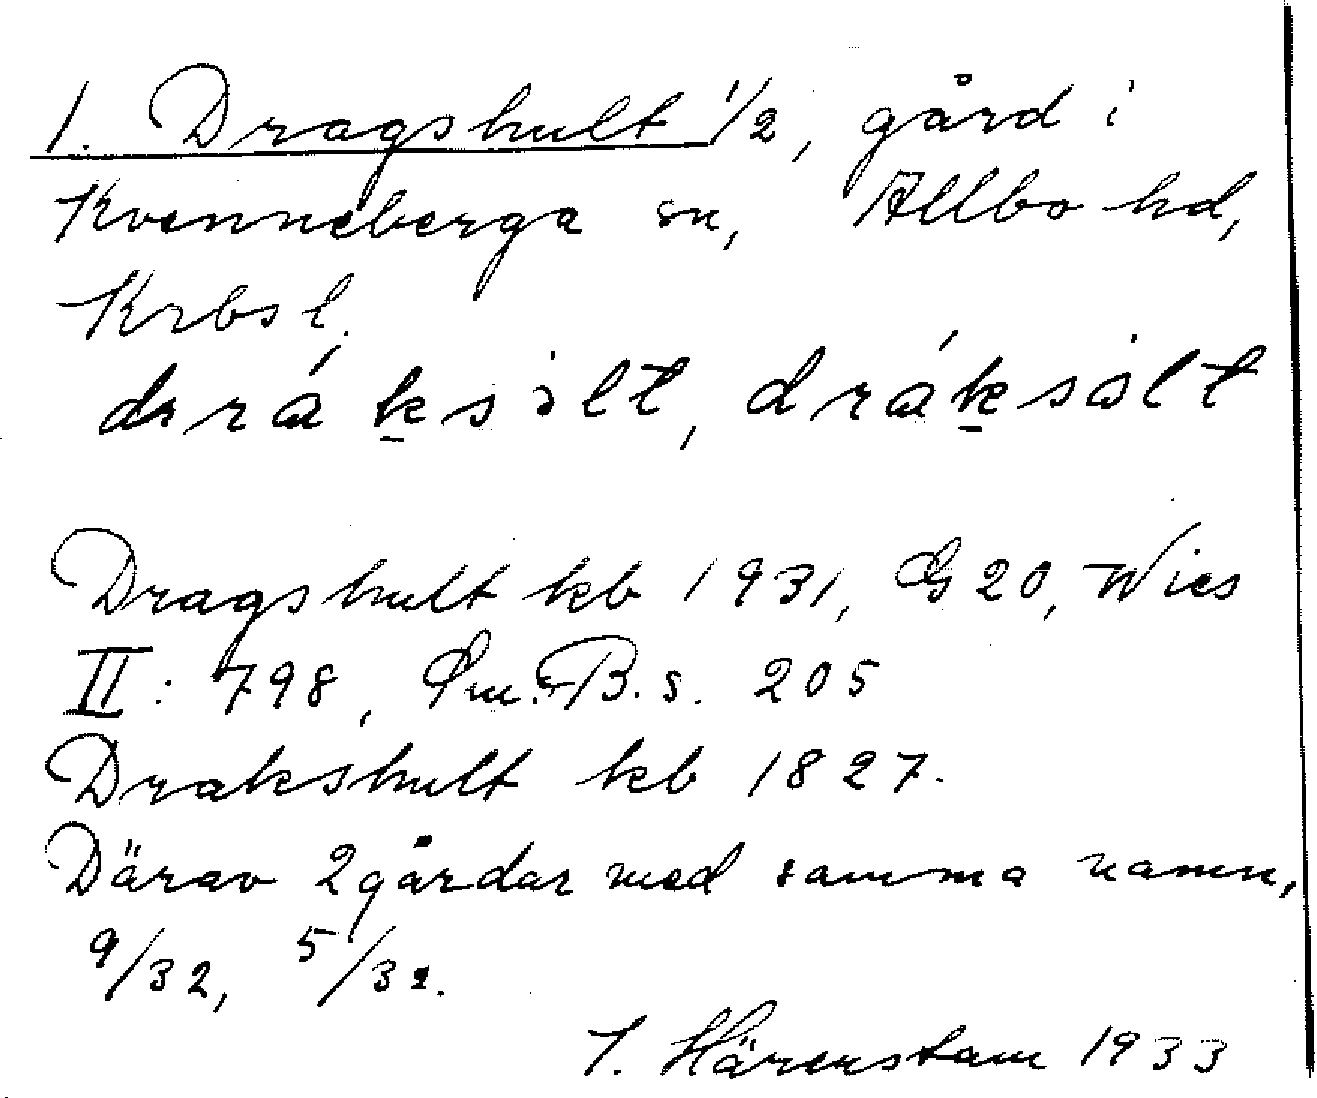 1. Dragshult 1/2, gård i
Kvenneberga sn, Allbo hd,
Krbs l.
dráksìlt, dráksålt
Dragshult kb 1931, G 20, Wies
II: 798, Sm. B. s. 205
Drakshult kb 1827.
Därav 2 gårdar med samma namn,
9/32, 5/32.
I. Härenstam 1933